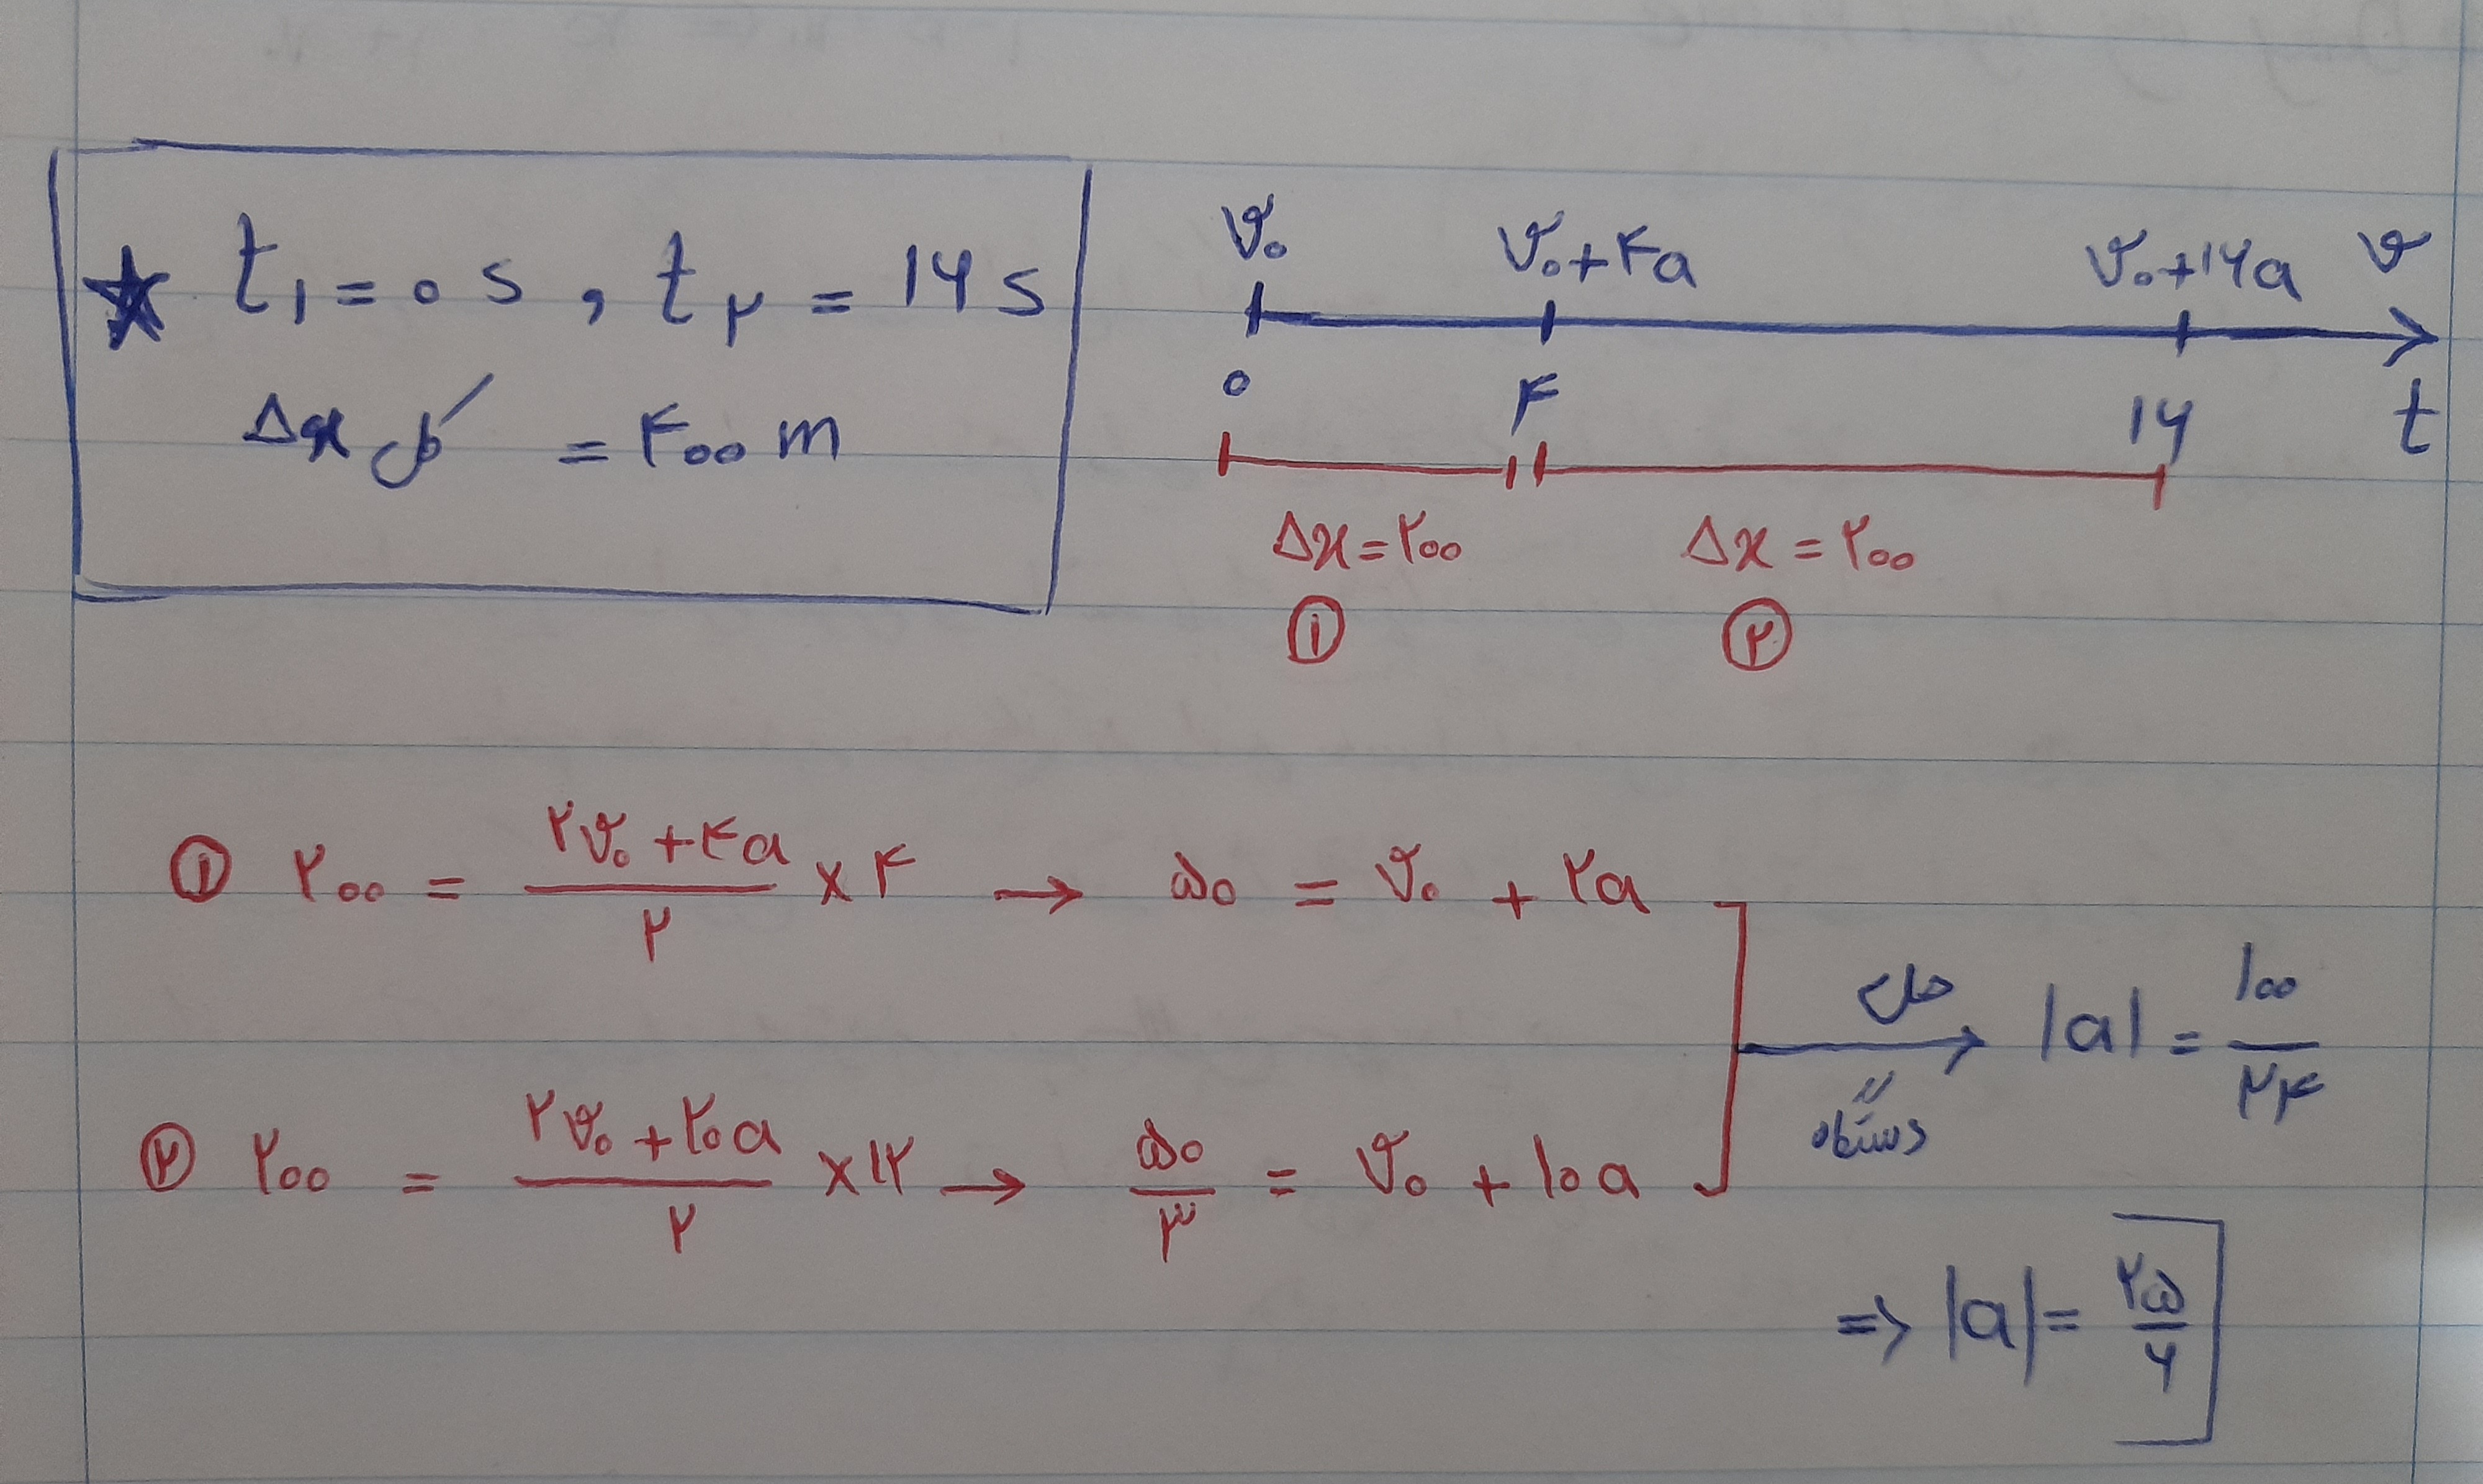 ★ t₁ = ۰ s , t₂ = ۱۶ s
Δx کل = ۴۰۰ m
v₀ v₀+۴a v₀+۱۶a v
۰ ۴ ۱۶ t
Δx = ۲۰۰ Δx = ۲۰۰
① ②
① ۲۰۰ = (۲v₀ + ۴a)/۲ × ۴ → ۵۰ = v₀ + ۲a
② ۲۰۰ = (۲v₀ + ۲۰a)/۲ × ۱۲ → ۵۰/۳ = v₀ + ۱۰a
حل دستگاه → |a| = ۱۰۰/۲۴
⇒ |a| = ۲۵/۶